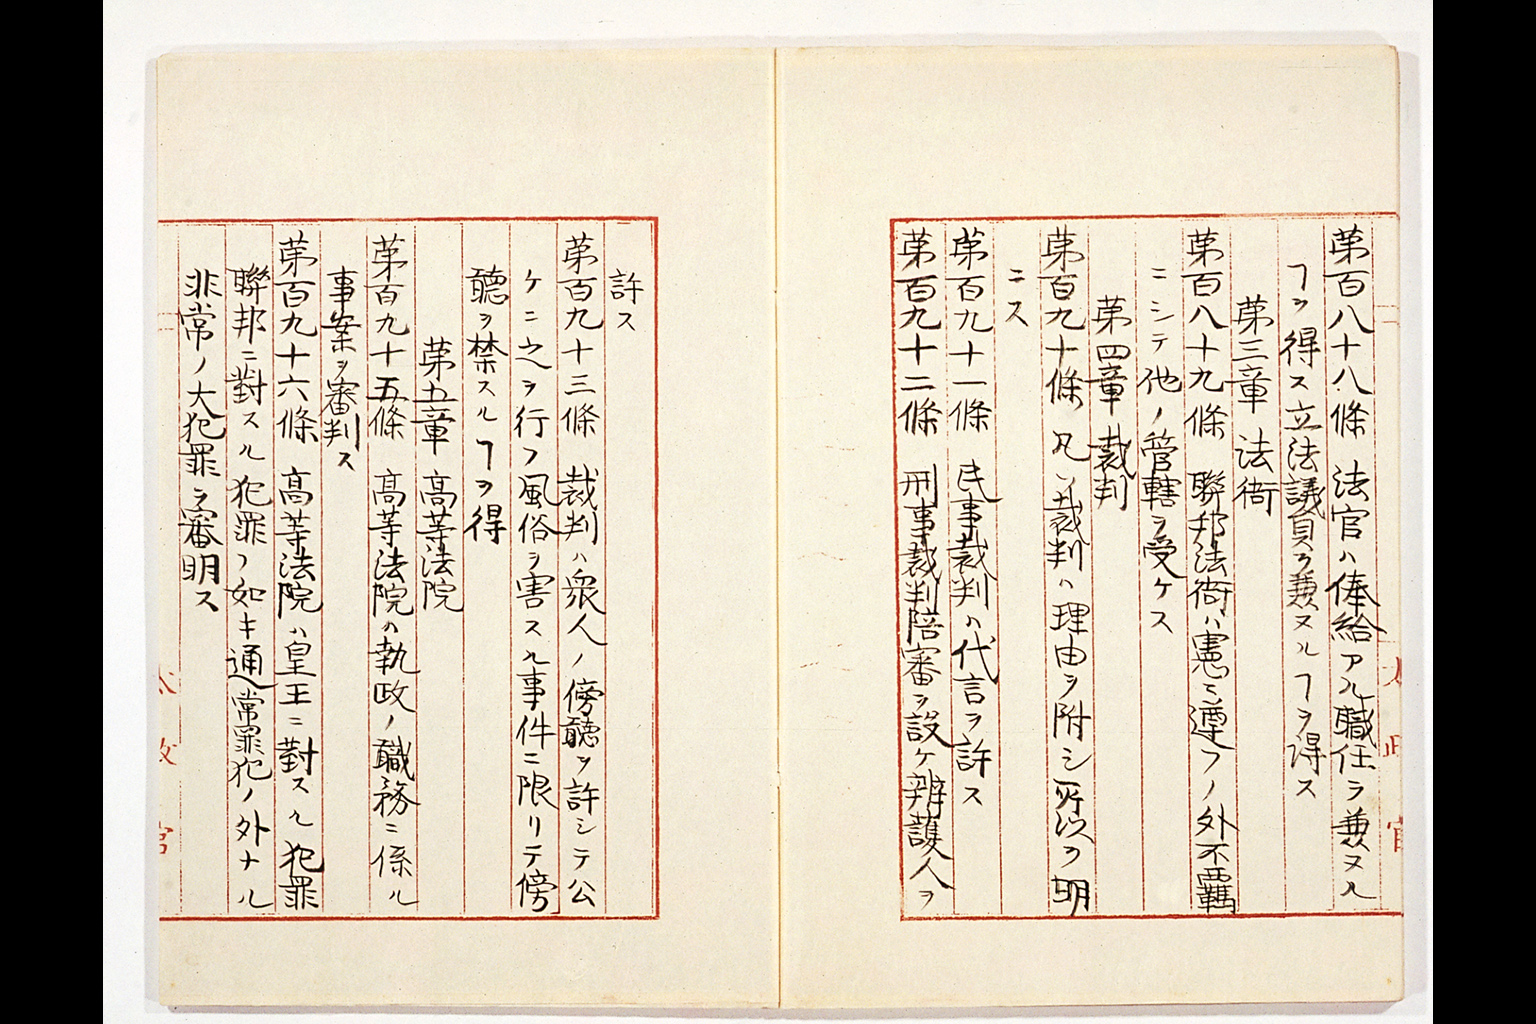 第百八十八條 法官ハ俸給アル職任ヲ兼ヌル
ヿヲ得ス立法議員ヲ兼ヌルヿヲ得ス
第三章 法衙
第百八十九條 聯邦法衙ハ憲ニ遵フノ外不羈
ニシテ他ノ管轄ヲ受ケス
第四章 裁判
第百九十條 凡ソ裁判ハ理由ヲ附シ所以ヲ明
ニス
第百九十一條 民事裁判ハ代言ヲ許ス
第百九十二條 刑事裁判陪審ヲ設ケ辨護人ヲ
許ス
第百九十三條 裁判ハ衆人ノ傍聽ヲ許シテ公
ケニ之ヲ行フ風俗ヲ害スル事件ニ限リテ傍
聽ヲ禁スルヿヲ得
第五章 高等法院
第百九十五條 高等法院ハ執政ノ職務ニ係ル
事案ヲ審判ス
第百九十六條 高等法院ハ皇王ニ對スル犯罪
聯邦ニ對スル犯罪ノ如キ通常罪犯ノ外ナル
非常ノ大犯罪ヲ審明ス
太政官